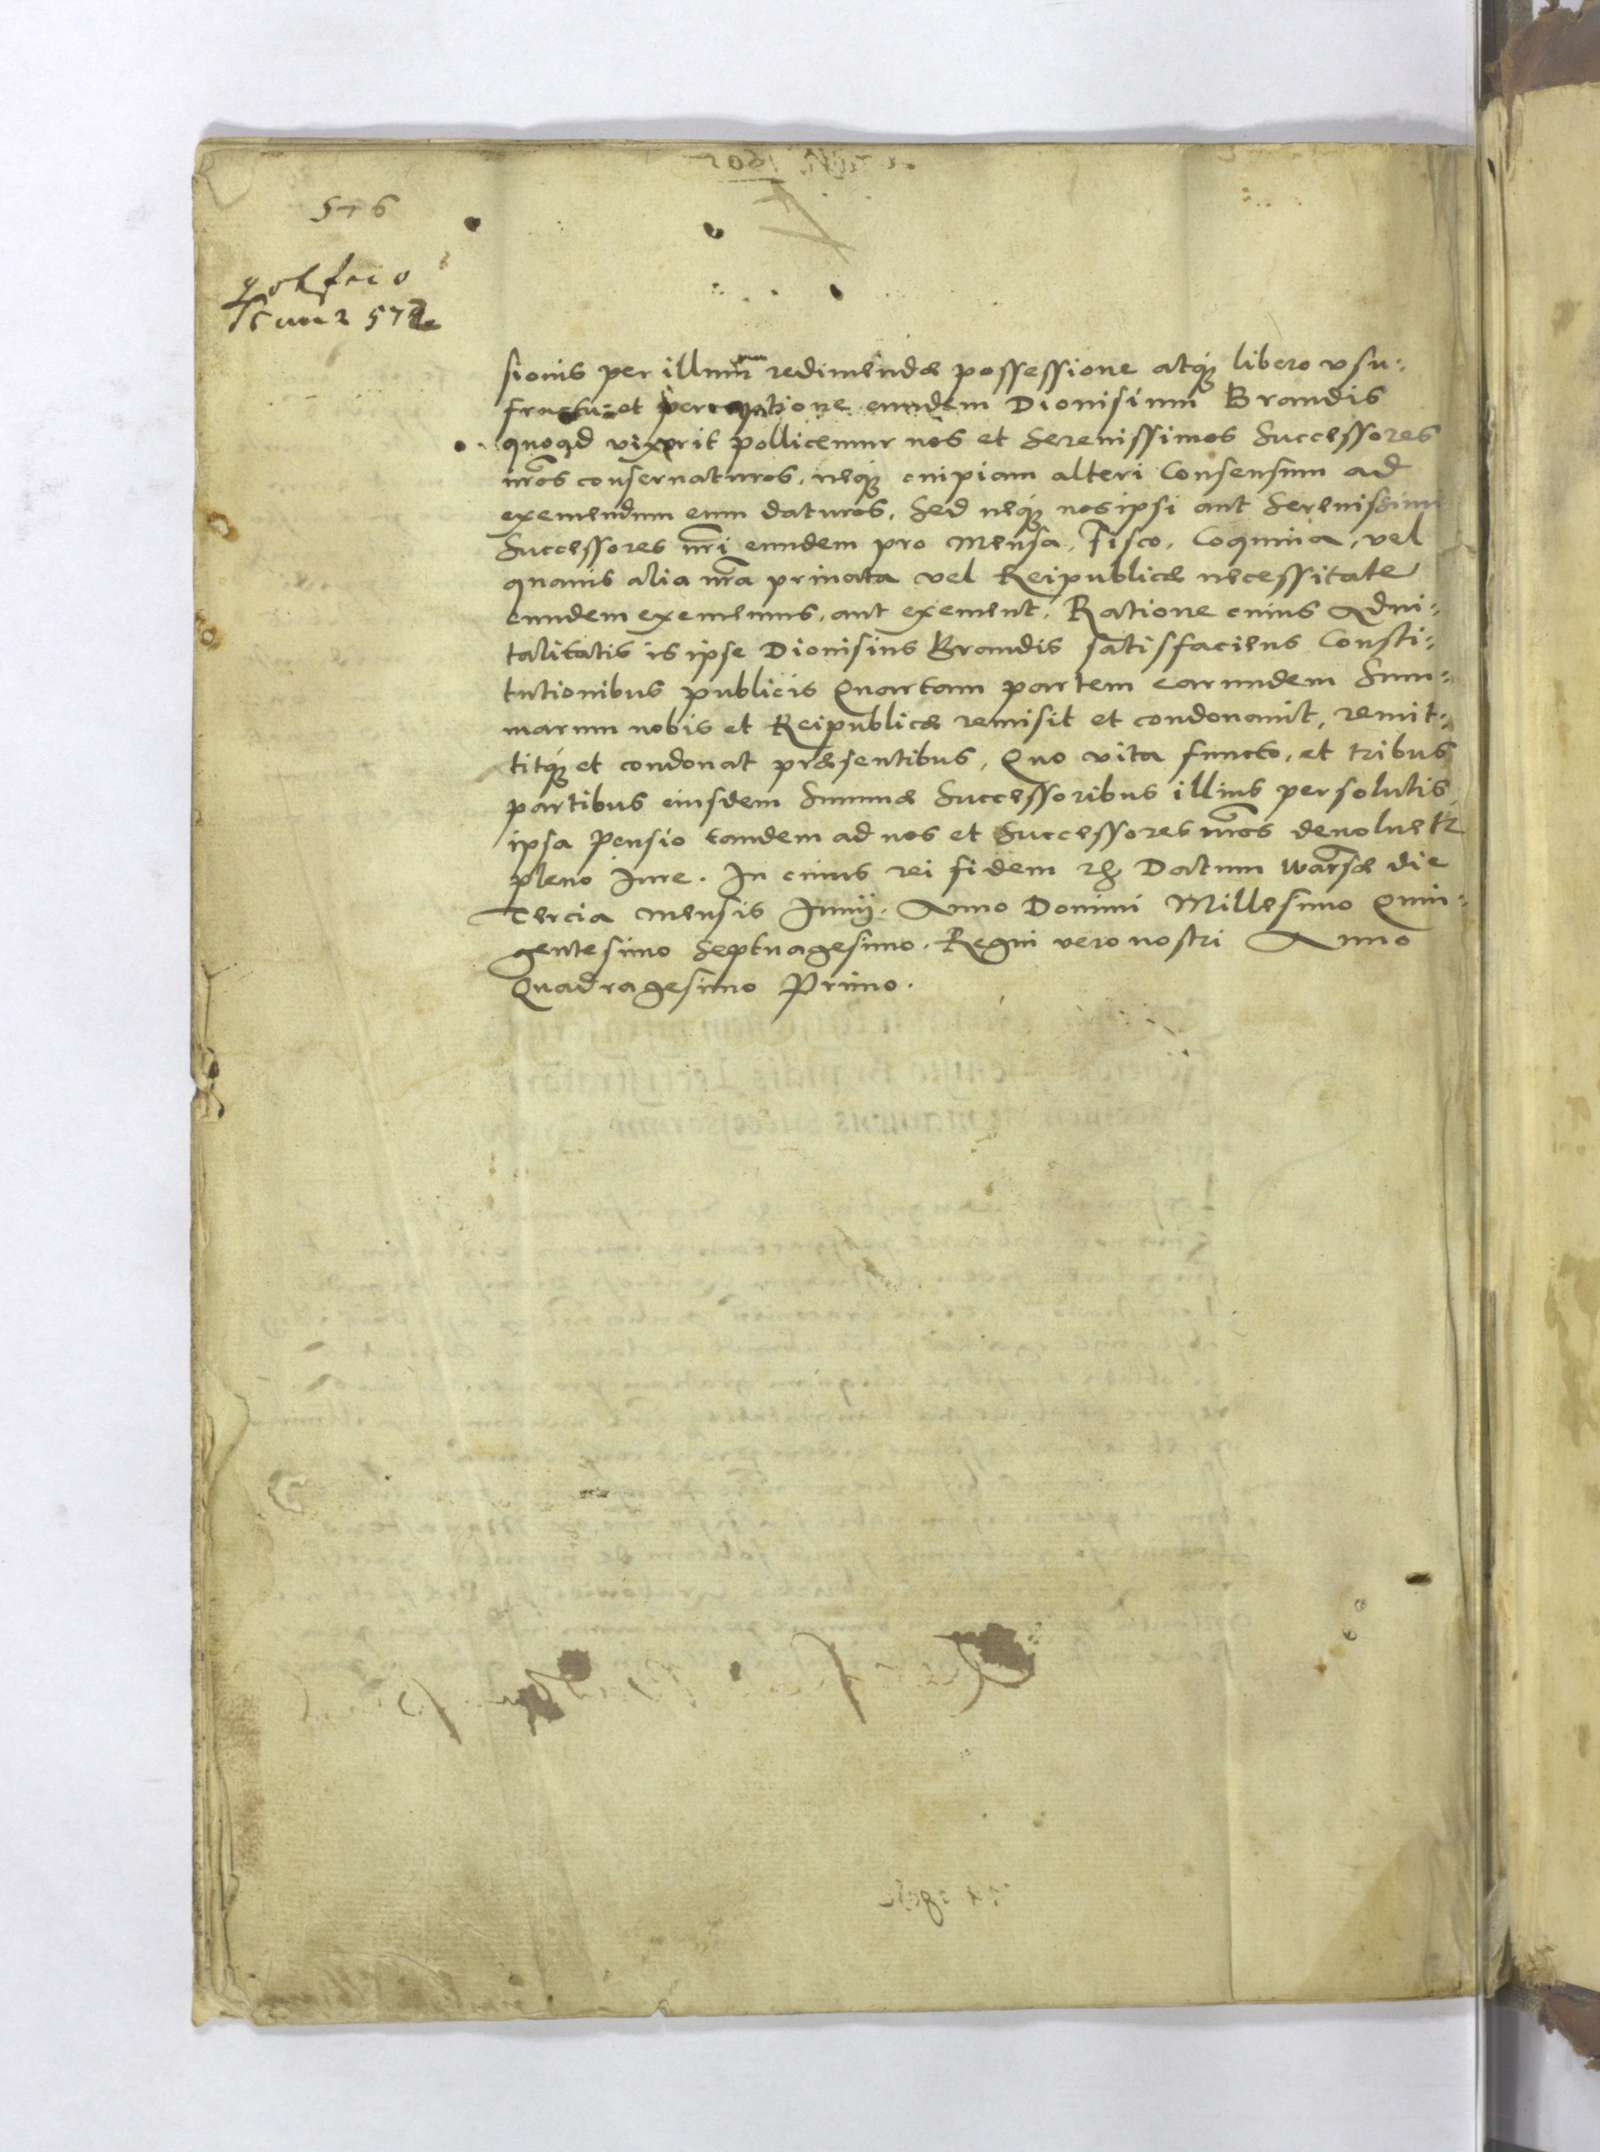 576
572
sionis per illum redimendæ possessione atq́ libero vsu-
fructu et perceptione eundem Dionisium Brandis
quoad vixerit pollicemur nos et Serenissimos Successores
nr̃os conseruaturos, neq́ cuipiam alteri Consensum ad
exemendum eum daturos. Sed neq́ nos ipsi aut Serenissimi
Successores nr̃i eundem pro Mensa, Fisco, Coquina, vel
quauis alia nr̃a priuata vel Reipublicæ necessitate
eundem exememus, aut exement. Ratione cuius Adui-
talitatis is ipse Dionisius Brandis satisfaciens Consti-
tutionibus publicis Quartam partem earundem Sum-
marum nobis et Reipublicæ remisit et condonauit, remit-
titq́ et condonat præsentibus, Quo vita functo, et tribus
partibus eiusdem Summæ Successoribus illius persolutis,
ipsa Pensio tandem ad nos et Successores nr̃os deuoluetr
pleno Iure. In cuius rei fidem rc̃ Datum Warsæ die
Tercia Mensis Iunij. Anno Domini Millesimo Quin-
gentesimo Septuagesimo. Regni vero nostri Anno
Quadragesimo Primo.